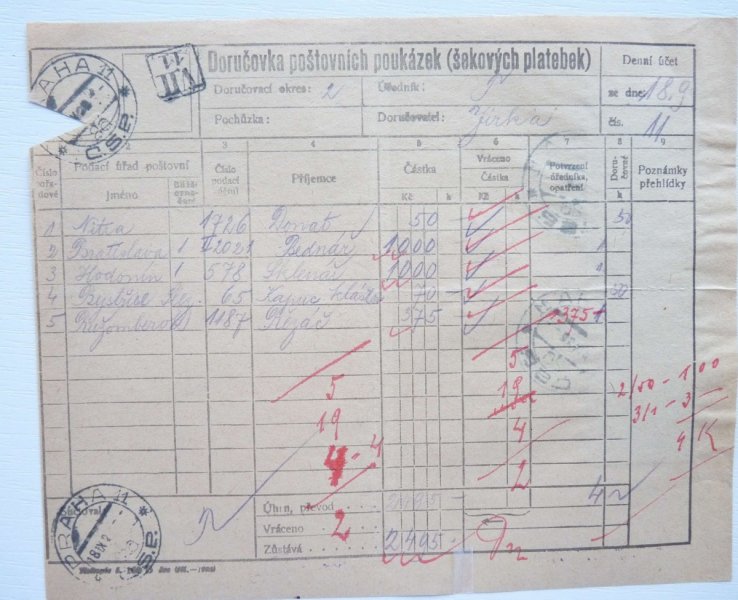 PRAHA 11
Č.S.P.
VII
11
Doručovka poštovních poukázek (šekových platebek)
Denní účet
Doručovací okres: 2
Úředník:
ze dne: 18.9
Pochůzka:
Doručovatel: Jirka
čís. 11
2 3 4 5 6 7 8 9
Číslo
Podací úřad poštovní
Číslo podací
Příjemce
Částka
Vráceno
Částka
Potvrzení úředníka, opatření
Doručovné
Poznámky přehlídky
Jméno
Kč h
Kč h
1 Nitra 1726 Donat 50 50
2 Bratislava 1 2021 Bednář 1000 1
3 Hodonín 1 578 Sklenář 1000 1
4 Bystřice 65 Kapuc 70 50
5 Ružomberok 1187 Řezáč 375 1375 1
5
5 19 2/50 - 1 00
19 3/1 - 3
4 4 K
4 - 4 2
2
4
Úhrn, převod 2495
Vráceno
Zůstává 2495
PRAHA 11
Č.S.P.